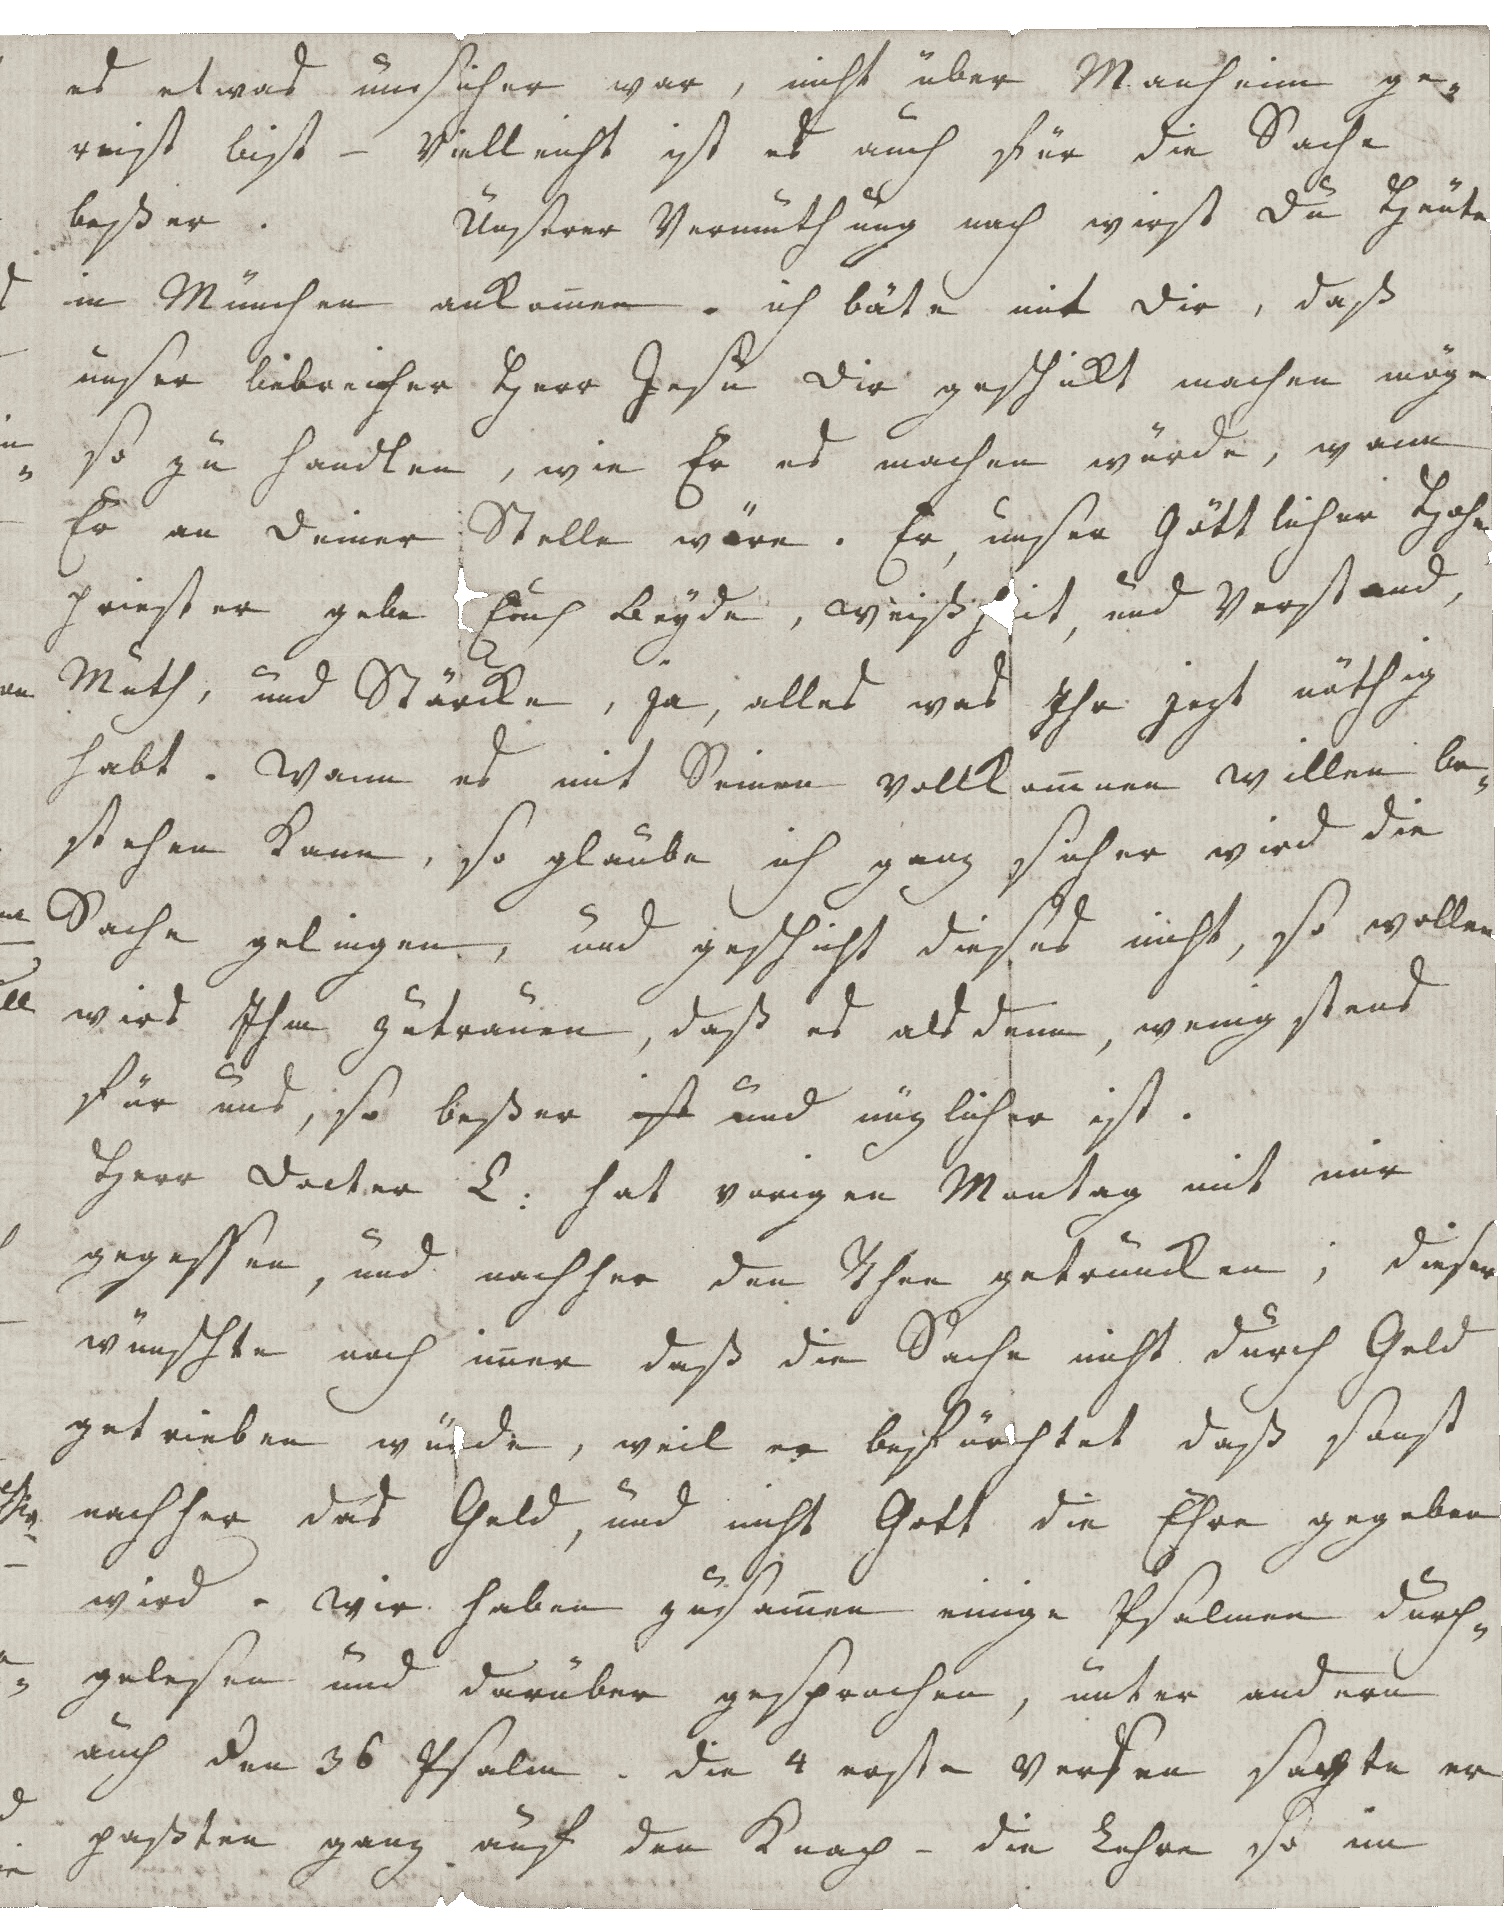 es etwas unsicher war, nicht über Manheim ge-
reist bist – Vielleicht ist es auch für die Sache
beßer. Unserer Vermuthung nach wirst Du Heute
in München ankom̅en. ich bäte mit Dir, daß
unser liebreicher Herr Jesu Dir geschikt machen möge
so zu handlen, wie Er es machen würde, wann
Er an Deiner Stelle wäre. Er, unser Göttlicher Hohe
priester gebe Euch Beyde, Weißheit, und Verstand,
Muth, und Stärcke, ja, alles was Ihr jezt nöthig
habt. Wann es mit Seinen vollkom̅nen willen be-
stehen kann, so glaube ich ganz sicher wird die
Sache gelingen, und geschicht dieses nicht, so wollen
wirs Ihm zutrauen, daß es alsdenn, wenigstens
für uns, so beßer ist und nüzlicher ist.
Herr Docter L: hat vorigen Montag mit mir
gegessen, und nachher den Thee getruncken; dieser
wünschte noch im̅er daß die Sache nicht durch Geld
getrieben würde, weil er befürchtet daß sonst
nachher das Geld, und nicht Gott die Ehre gegeben
wird. Wir haben zusam̅en einige Psalmen durch-
gelesen und darüber gesprochen, unter andern
auch den 36 Psalm. die 4 erste Versen sagte er
paßten ganz auf den Knap – die Lehre so im